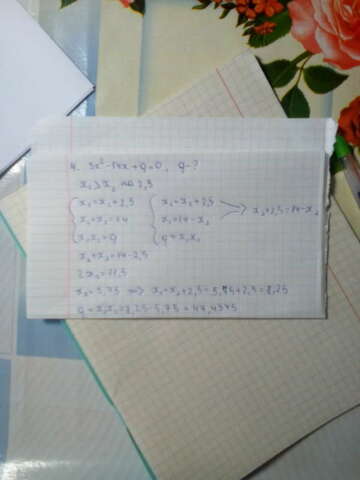 4. 3x²-14x+q=0, q-?
x₁>x₂ на 2,5
{x₁=x₂+2,5 {x₁=x₂+2,5
{x₁+x₂=14 {x₁=14-x₂ => x₂+2,5=14-x₂
{x₁x₂=q {q=x₁x₂
x₂+x₂=14-2,5
2x₂=11,5
x₂=5,75 => x₁=x₂+2,5=5,75+2,5=8,25
q=x₁x₂=8,25·5,75=47,4375